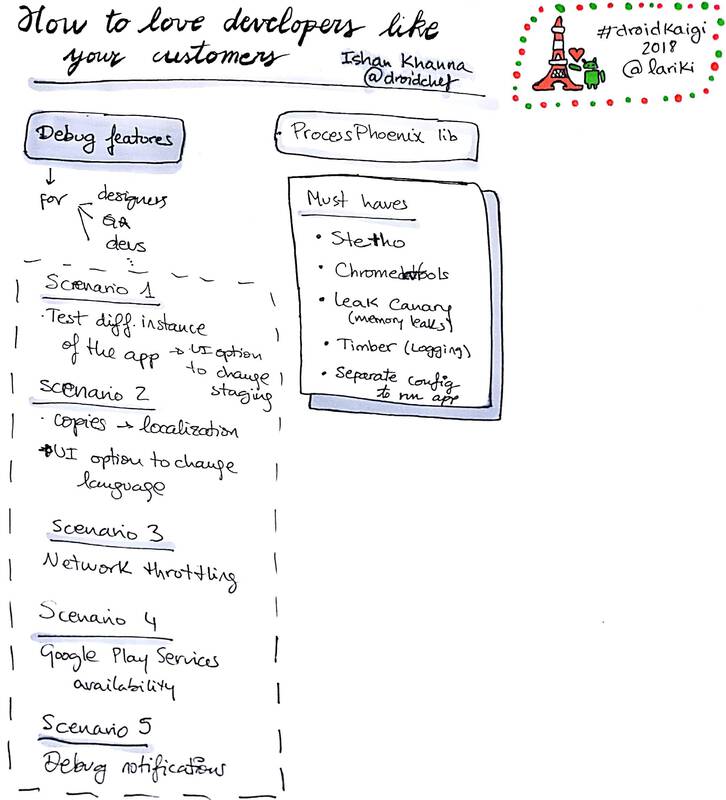 How to love developers like
your customers
Ishan Khanna
@droidchef
#droidkaigi
2018
@lariki
Debug features
for
designers
QA
devs
Scenario 1
· Test diff. instance
of the app → UI option
to change
staging
Scenario 2
· copies → localization
→ UI option to change
language
Scenario 3
Network throttling
Scenario 4
Google Play Services
availability
Scenario 5
Debug notifications
ProcessPhoenix lib
Must haves
• Stetho
• Chromedevtools
• Leak Canary
(memory leaks)
• Timber (Logging)
• Separate config
to run app